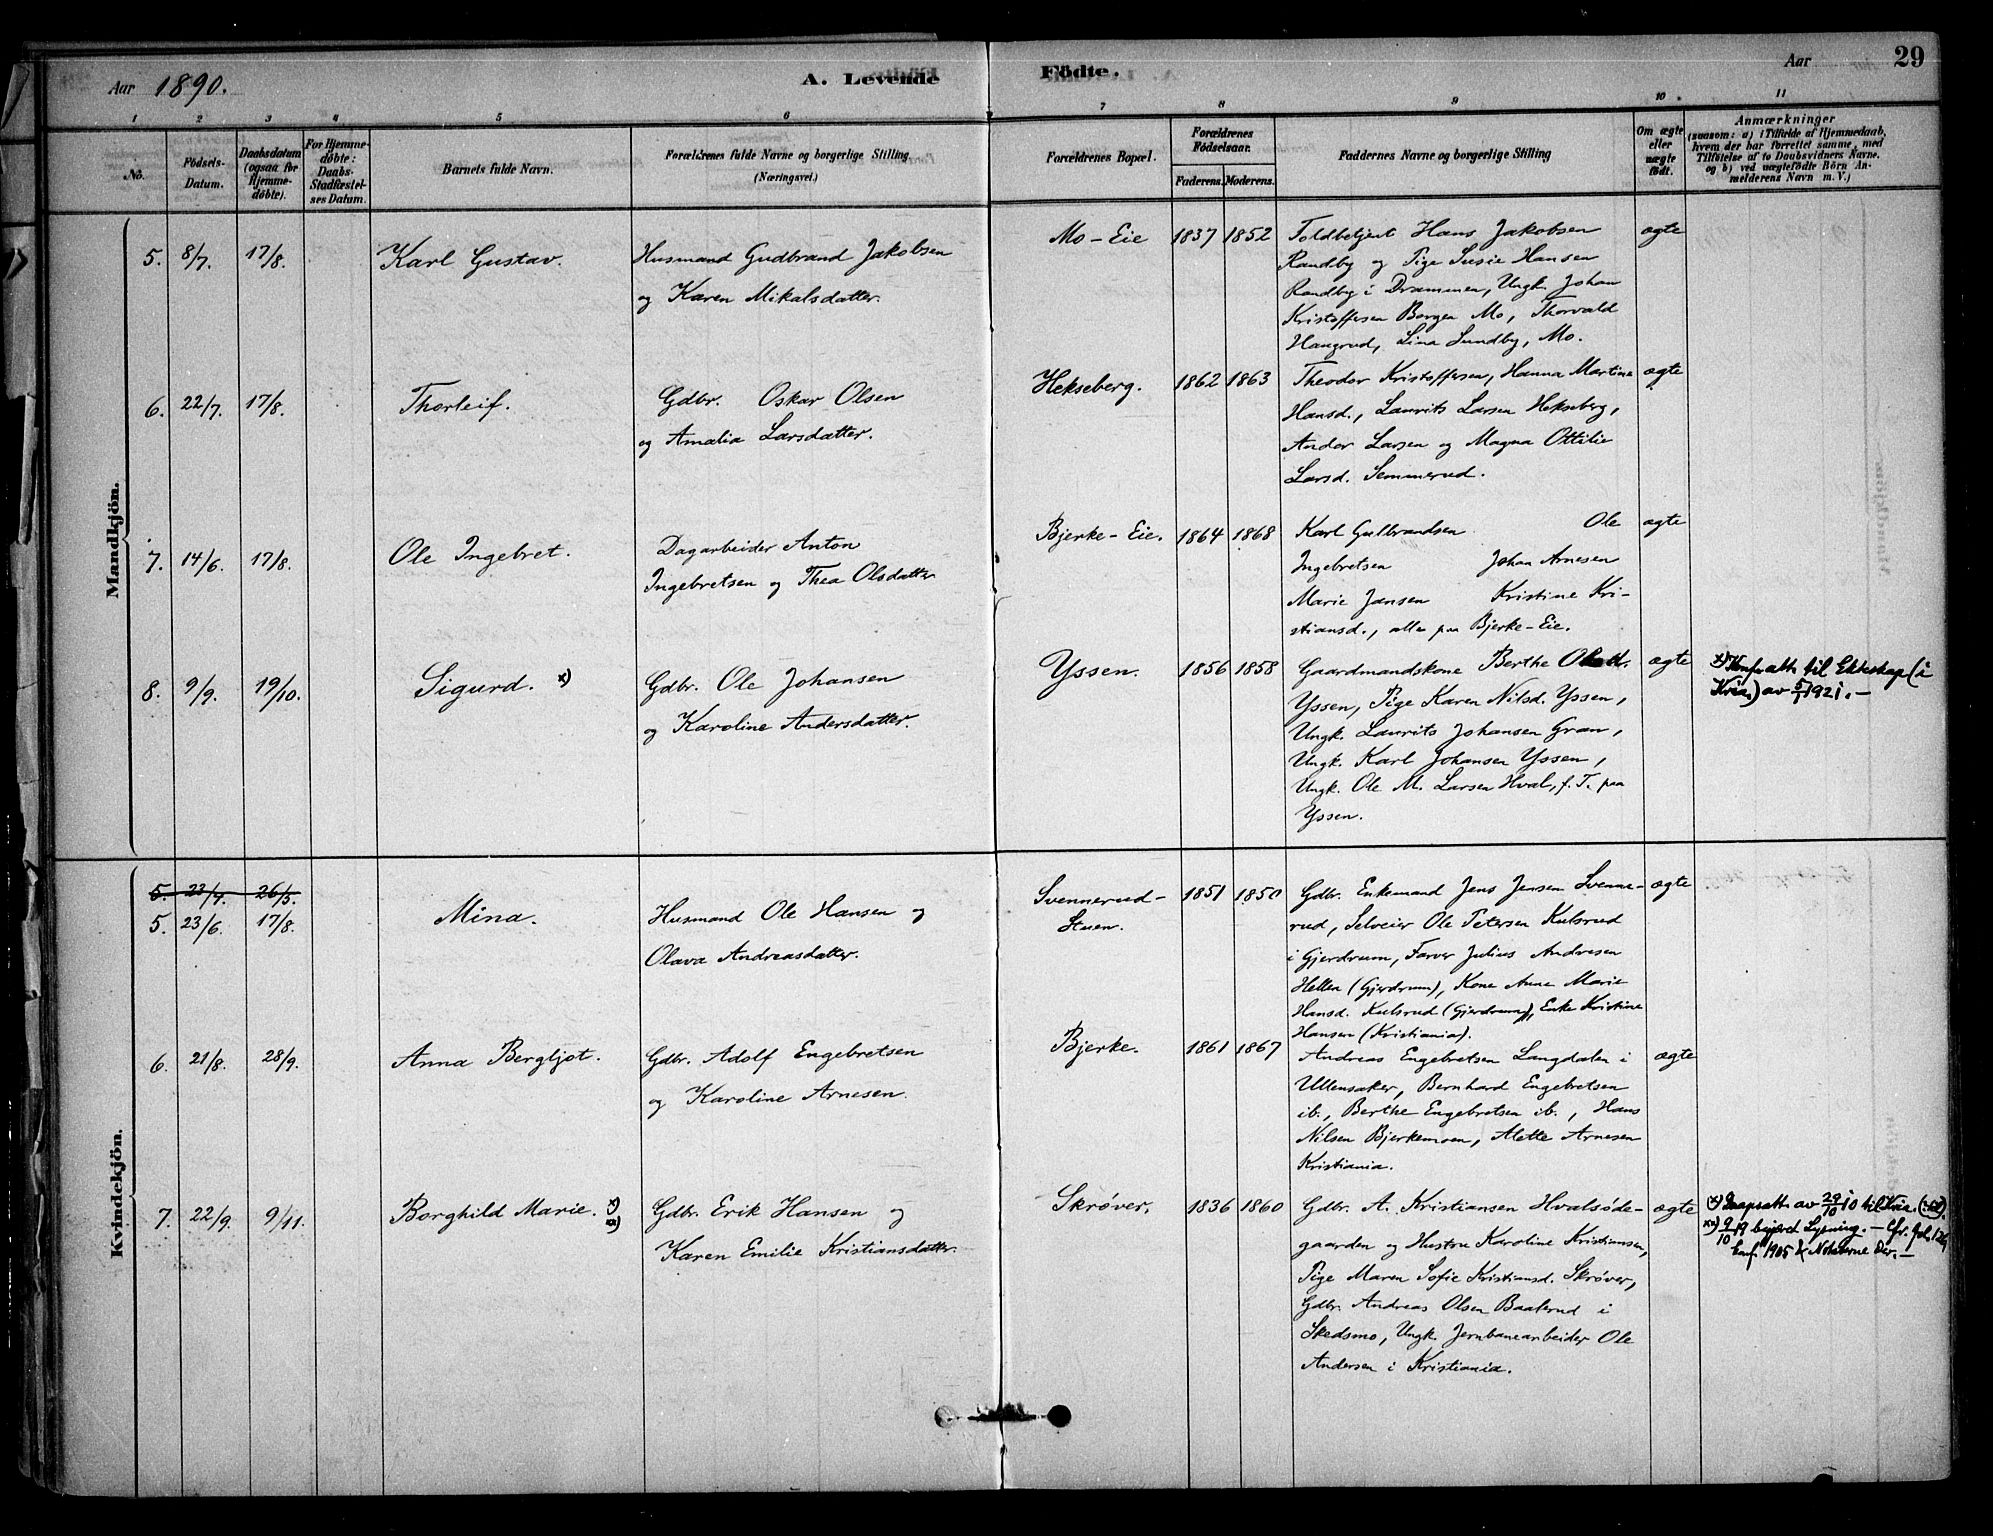 Aar 1890.
A. Levende Födte.
Aar
29
1 2 3 4 5 6 7 8 9 10 11
No.
Födsels-
Datum.
Daabsdatum
(ogsaa for
Hjemme-
döbte).
For Hjemme-
döbte:
Daabs-
Stadfæstel-
ses Datum.
Barnets fulde Navn.
Forældrenes fulde Navne og borgerlige Stilling
(Næringsvei.)
Forældrenes Bopæl.
Forældrenes
Födselsaar.
Faderens. Moderens.
Faddernes Navne og borgerlige Stilling
Om ægte
eller
uægte
født.
Anmærkninger
(saasom: a) i Tilfælde af Hjemmedaab,
hvem der har forrettet samme, med
Tilføielse af to Daabsvidners Navne.
og b) ved uægtefödte Börn An-
melderens Navn m. V.)
Mandkjön.
5. 8/7. 17/8. Karl Gustav.
Husmand Gudbrand Jakobsen
og Karen Mikalsdatter.
Mo-Eie 1837 1852
Toldbetjent Hans Jakobsen
Randby og Pige Susie Hansen
Randby i Drammen, Ungk. Johan
Kristoffersen Borgen Mo, Thorvald
Haugrud, Lina Sundby, Mo.
ægte
6. 22/7. 17/8. Thorleif.
Gdbr. Oskar Olsen
og Amalia Larsdatter.
Hekseberg. 1862 1863
Theodor Kristoffersen, Hanna Martine
Hansd., Laurits Larsen Hekseberg,
Andor Larsen og Magna Ottilie
Larsd. Semmerud.
ægte
7. 14/6. 17/8. Ole Ingebret.
Dagarbeider Anton
Ingebretsen og Thea Olsdatter
Bjerke-Eie. 1864 1868
Karl Gulbrandsen Ole
Ingebretsen Johan Arnesen
Marie Jansen Kristine Kri-
stiansd., alle paa Bjerke-Eie.
ægte
8. 9/9. 19/10. Sigurd. x)
Gdbr. Ole Johansen
og Karoline Andersdatter.
Yssen. 1856 1858
Gaardmandskone Berthe
Yssen, Pige Karen Nilsd. Yssen,
Ungk. Laurits Johansen Gran,
Ungk. Karl Johansen Yssen,
Ungk. Ole M. Larsen Hval, f. T. paa
Yssen.
ægte
x) til Ekteskap (i
Kria.) av 5/1 1921. –
Kvindekjön.
5. 23/7. 26/5.
5. 23/6. 17/8. Mina.
Husmand Ole Hansen og
Olava Andreasdatter.
Svennerud-
Stuen.
1851 1850
Gdbr. Enkemand Jens Jensen Svenne-
rud, Selveier Ole Petersen Kulsrud
i Gjerdrum, Farver Julius Andresen
Hellen (Gjerdrum), Kone Anne Marie
Hansd. Kulsrud (Gjerdrum), Enke Kristine
Hansen (Kristiania).
ægte
6. 21/8. 28/9. Anna Bergljot.
Gdbr. Adolf Engebretsen
og Karoline Arnesen.
Bjerke. 1861 1867
Andreas Engebretsen Langdalen i
Ullensaker, Bernhard Engebretsen
ib., Berthe Engebretsen ib., Hans
Nilsen Bjerkemoen, Alette Arnesen
Kristiania.
ægte
7. 22/9. 9/11. Borghild Marie. x) xx)
Gdbr. Erik Hansen og
Karen Emilie Kristiansdatter.
Skrøver. 1836 1860
Gdbr. A. Kristiansen Hvalsøde-
gaarden og Hustru Karoline Kristiansen,
Pige Maren Sofie Kristiansd. Skrøver,
Gdbr. Andreas Olsen Baalerud i
Skedsmo, Ungk. Jernbanearbeider Ole
Andersen i Kristiania.
ægte
x) Daapsatt. av 29/10 10 til Kria.
xx) 9/10 19 Lysning. –
1905 & Noterne Der. –